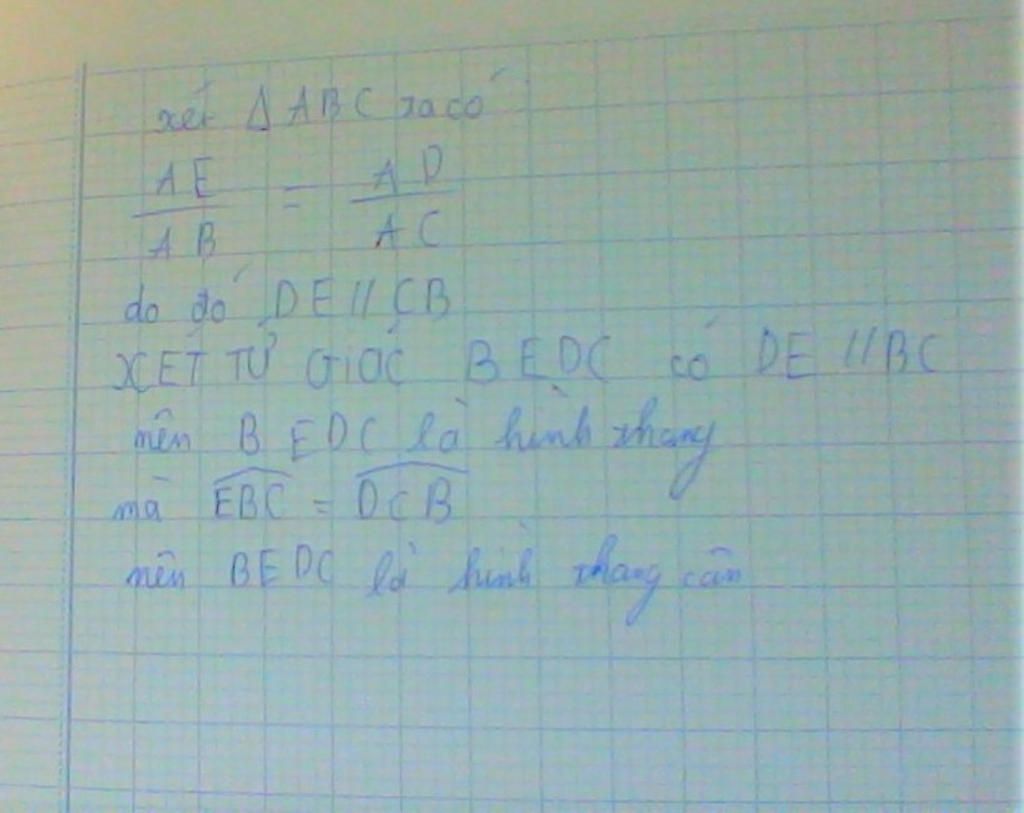 xét Δ ABC ta có
AE = AD
AB AC
do đó DE // CB
XÉT TỨ GIÁC BEDC có DE // BC
nên BEDC là hình thang
mà EBC = DCB
nên BEDC là hình thang cân